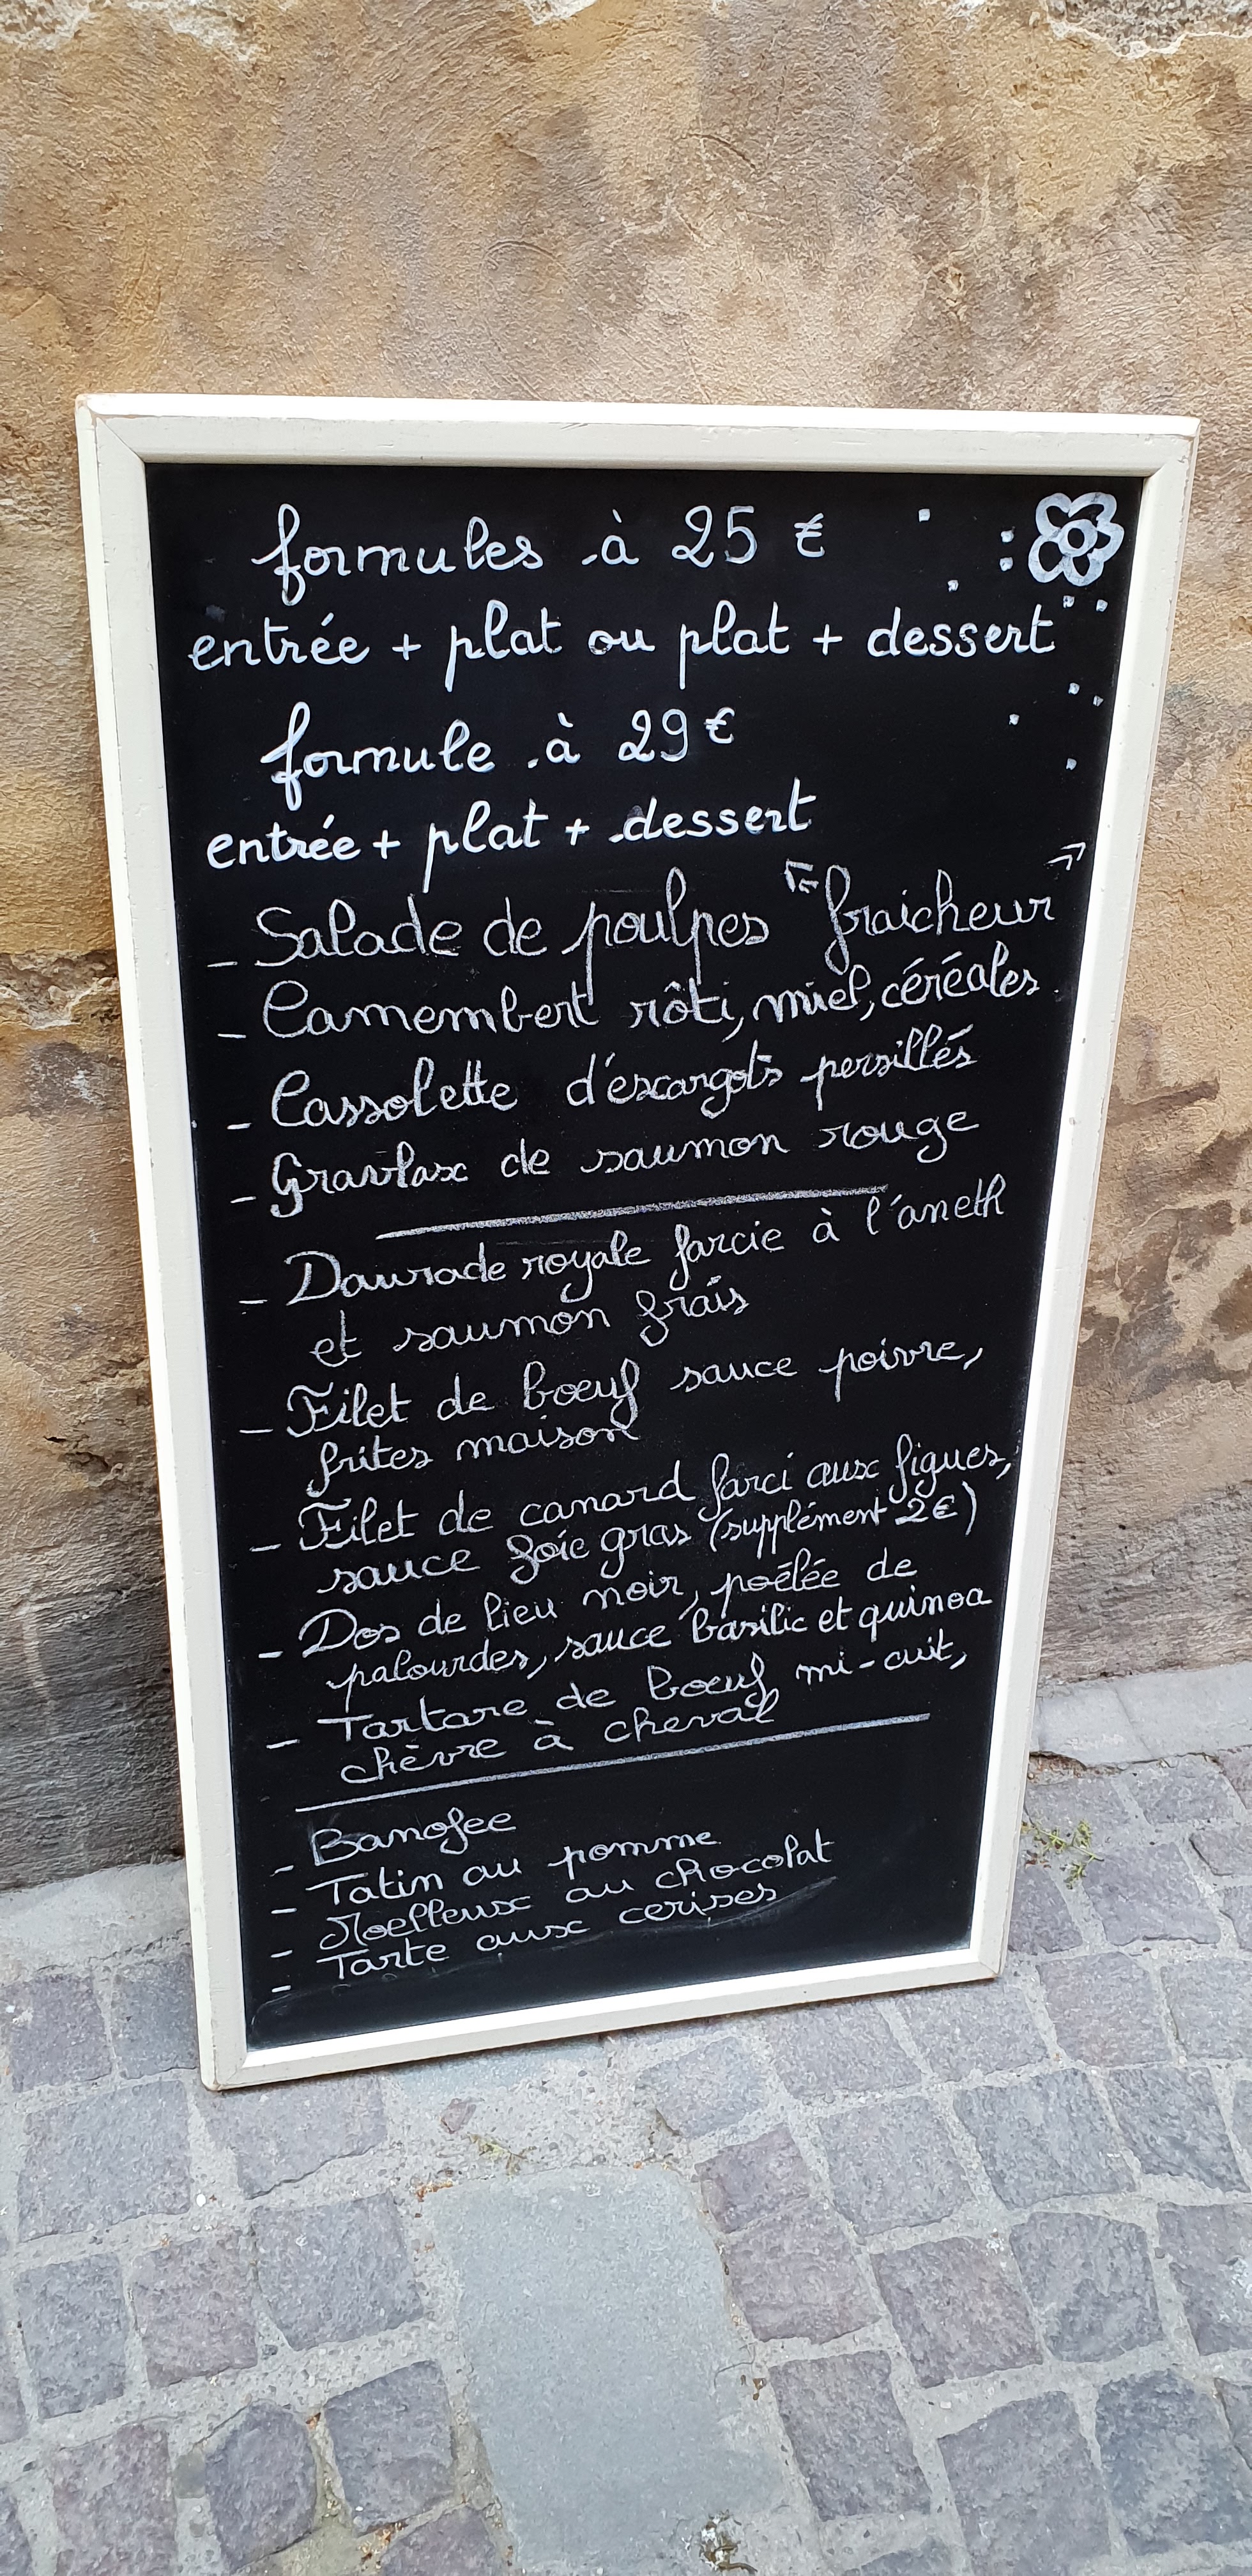 formules à 25 €
entrée + plat ou plat + dessert
formule à 29 €
entrée + plat + dessert
- Salade de poulpes "fraicheur"
- Camembert rôti, miel, céréales.
- Cassolette d'escargots persillés
- Gravlax de saumon rouge
- Daurade royale farcie à l'aneth
et saumon frais
- Filet de bœuf sauce poivre,
frites maison
- Filet de canard farci aux figues,
sauce foie gras (supplément 2€)
- Dos de lieu noir, poêlée de
palourdes, sauce basilic et quinoa
- Tartare de bœuf mi-cuit,
chèvre à cheval
- Banofee
- Tatin au pomme
- Moelleux au chocolat
- Tarte aux cerises